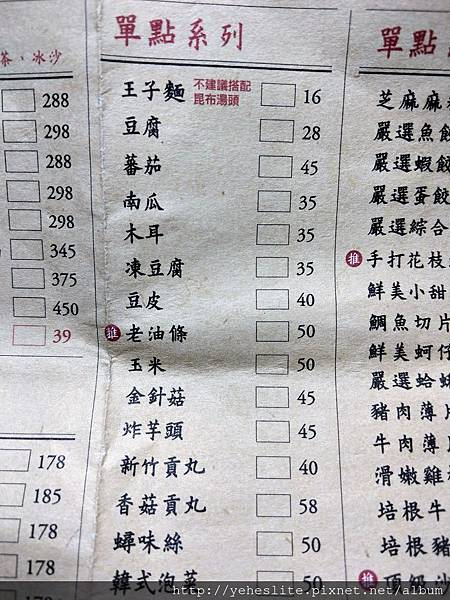 茶、冰沙
288
298
288
298
298
345
375
450
39
178
185
178
178
單點系列
王子麵 不建議搭配昆布湯頭 16
豆腐 28
蕃茄 45
南瓜 35
木耳 35
凍豆腐 35
豆皮 40
推 老油條 50
玉米 50
金針菇 45
炸芋頭 45
新竹貢丸 40
香菇貢丸 58
蟳味絲 50
韓式泡菜 50
單點
芝麻麻
嚴選魚餃
嚴選蝦餃
嚴選蛋餃
嚴選綜合
推 手打花枝
鮮美小甜
鯛魚切片
鮮美蚵仔
嚴選蛤蜊
豬肉薄片
牛肉薄片
滑嫩雞
培根牛
培根豬
推 頂級沙
http://yeheslite.pixnet.net/album